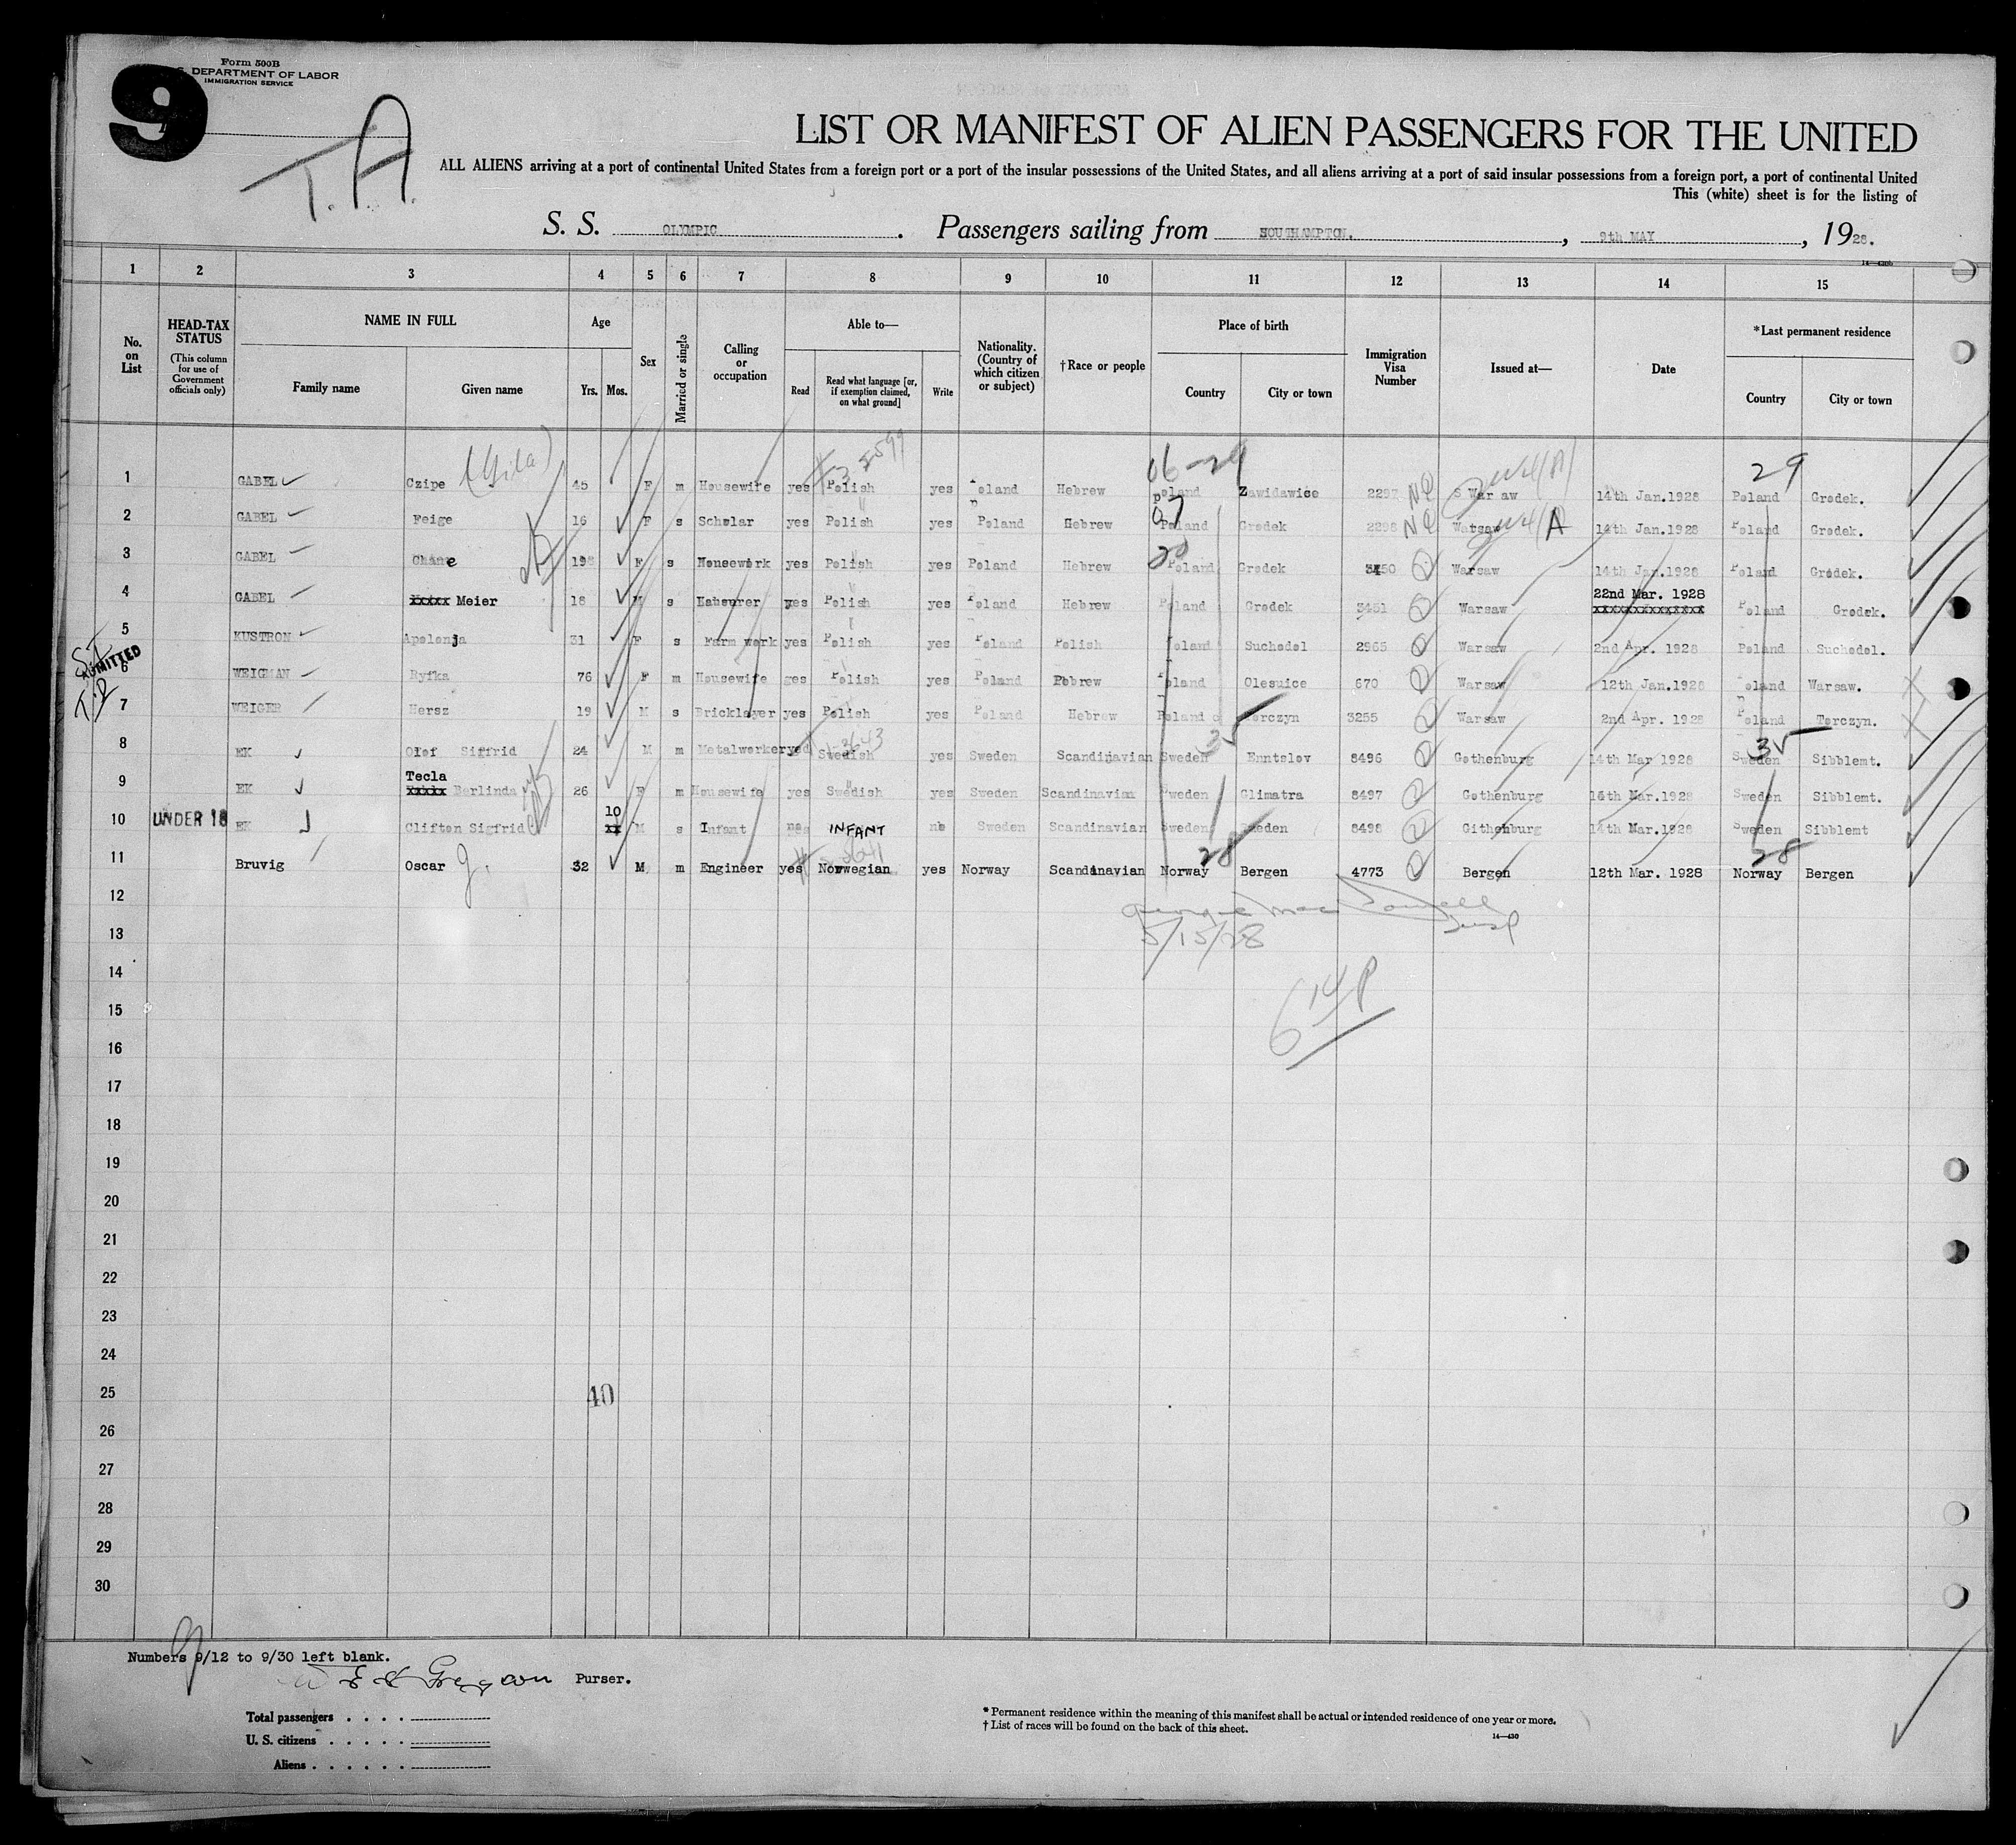 9
Form 500B
S. DEPARTMENT OF LABOR
IMMIGRATION SERVICE
T. A.
LIST OR MANIFEST OF ALIEN PASSENGERS FOR THE UNITED
ALL ALIENS arriving at a port of continental United States from a foreign port or a port of the insular possessions of the United States, and all aliens arriving at a port of said insular possessions from a foreign port, a port of continental United
This (white) sheet is for the listing of
S. S. OLYMPIC. Passengers sailing from SOUTHAMPTON., 9th MAY, 1928.
1 2 3 4 5 6 7 8 9 10 11 12 13 14 15
No. on List
HEAD-TAX STATUS (This column for use of Government officials only)
NAME IN FULL
Family name Given name
Age
Yrs. Mos.
Sex
Married or single
Calling or occupation
Able to—
Read Read what language [or, if exemption claimed, on what ground] Write
Nationality. (Country of which citizen or subject)
†Race or people
Place of birth
Country City or town
Immigration Visa Number
Issued at—
Date
*Last permanent residence
Country City or town
1 GABEL Czipe (Gila) 45 F m Housewife yes Polish yes Poland Hebrew Poland Zawidawice 2297 S War aw 14th Jan.1928 Poland Grodek.
2 GABEL Feige 16 F s Scholar yes Polish yes Poland Hebrew Poland Grodek 2298 Warsaw A 14th Jan.1928 Poland Grodek.
3 GABEL Chane 19 F s Housework yes Polish yes Poland Hebrew Poland Grodek 3450 Warsaw 14th Jan.1928 Poland Grodek.
4 GABEL xxxxx Meier 18 M s Labourer yes Polish yes Poland Hebrew Poland Grodek 3451 Warsaw 22nd Mar. 1928 Poland Grodek.
5 KUSTRON Apolonja 31 F s Farm work yes Polish yes Poland Polish Poland Suchodol 2965 Warsaw 2nd Apr. 1928 Poland Suchodol.
ADMITTED
6 WEIGMAN Ryfka 76 F m Housewife yes Polish yes Poland Hebrew Poland Olesuice 670 Warsaw 12th Jan.1928 Poland Warsaw.
7 WEIGER Hersz 19 M s Bricklayer yes Polish yes Poland Hebrew Poland Torczyn 3255 Warsaw 2nd Apr. 1928 Poland Torczyn.
8 EK Olof Sigfrid 24 M m Metalworker yes Swedish yes Sweden Scandinavian Sweden Enntslov 8496 Gothenburg 14th Mar 1928 Sweden Sibblemt.
9 EK Tecla xxxxx Berlinda 26 F m Housewife yes Swedish yes Sweden Scandinavian Sweden Glimatra 8497 Gothenburg 14th Mar.1928 Sweden Sibblemt.
10 UNDER 16 EK Clifton Sigfrid 10 M s Infant no INFANT no Sweden Scandinavian Sweden Sweden 8498 Githenburg 14th Mar.1928 Sweden Sibblemt
11 Bruvig Oscar J. 32 M m Engineer yes Norwegian yes Norway Scandinavian Norway Bergen 4773 Bergen 12th Mar. 1928 Norway Bergen
12
13 5/15/28
14
15
16
17
18
19
20
21
22
23
24
25 40
26
27
28
29
30
Numbers 9/12 to 9/30 left blank.
Purser.
Total passengers
U. S. citizens
Aliens
* Permanent residence within the meaning of this manifest shall be actual or intended residence of one year or more.
† List of races will be found on the back of this sheet.
14—430